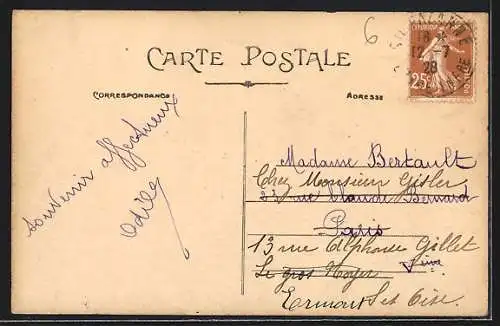 6
CARTE POSTALE
CORRESPONDANCE
ADRESSE
18
12-7
28
25c
Souvenir affectueux
Odile
Madame Bertault
Chez Monsieur Gisler
23 rue Claude Bernard
Paris
13 rue Alphonse Gillet
Le gros Noyer
Ermont S et Oise